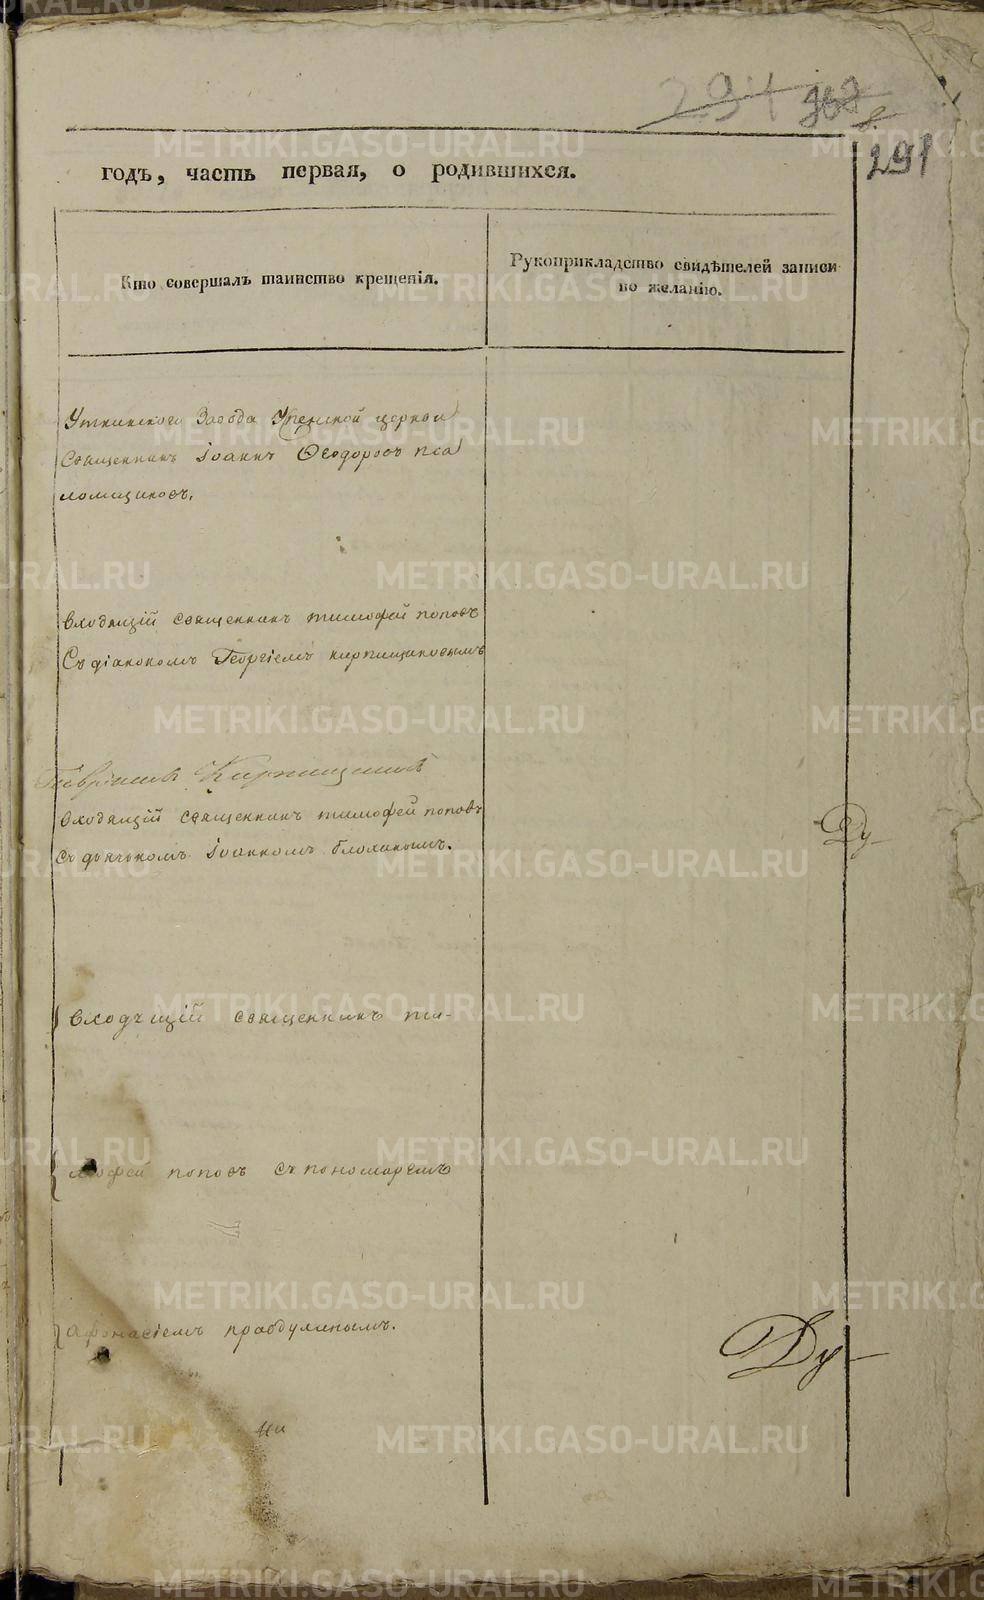 291
годъ, часть первая, о родившихся.
Кто совершалъ таинство крещенія.
Рукоприкладство свидѣтелей записи
по желанію.
Уткинскаго Завода церкви
Священникъ Іоаннъ Ѳеодоровъ Пса
ломщиковъ.
входящій священникъ тимофей поповъ
Съ діакономъ Георгіемъ кирпищиковымъ
входящій священникъ тимофей поповъ
съ дьячкомъ Іоанномъ
входящій священникъ ти-
мофей поповъ съ пономаремъ
Афонасіемъ правдулинымъ.
METRIKI.GASO-URAL.RU